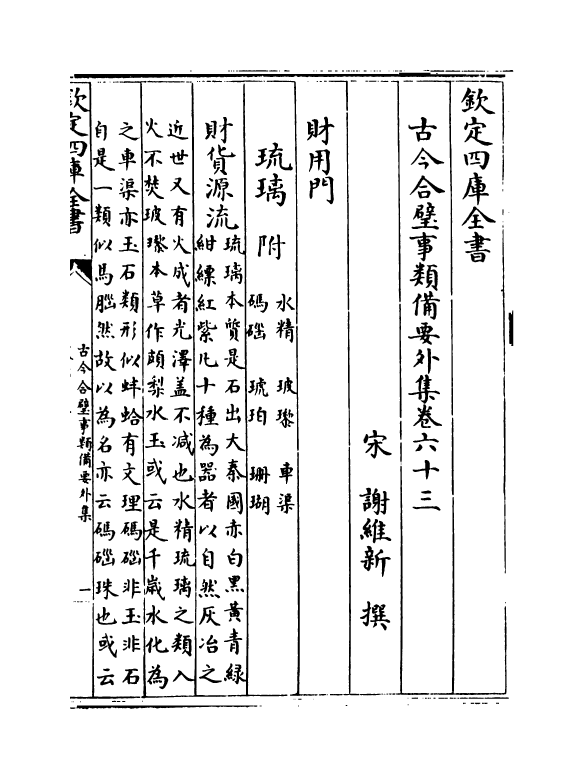 欽定四庫全書
古今合璧事類備要外集卷六十三
宋 謝維新 撰
財用門
琉璃 附 水精 玻瓈 車渠
碼碯 琥珀 珊瑚
財貨源流 琉璃本質是石出大秦國亦白黑黃青緑
紺縹紅紫凡十種為器者以自然灰冶之
近世又有火成者光澤盖不减也水精琉璃之類入
火不焚玻瓈本草作頗梨水玉或云是千歲水化為
之車渠亦玉石類形似蚌蛤有文理碼碯非玉非石
自是一類似馬腦然故以為名亦云碼碯珠也或云
欽定四庫全書
古今合璧事類備要外集
一